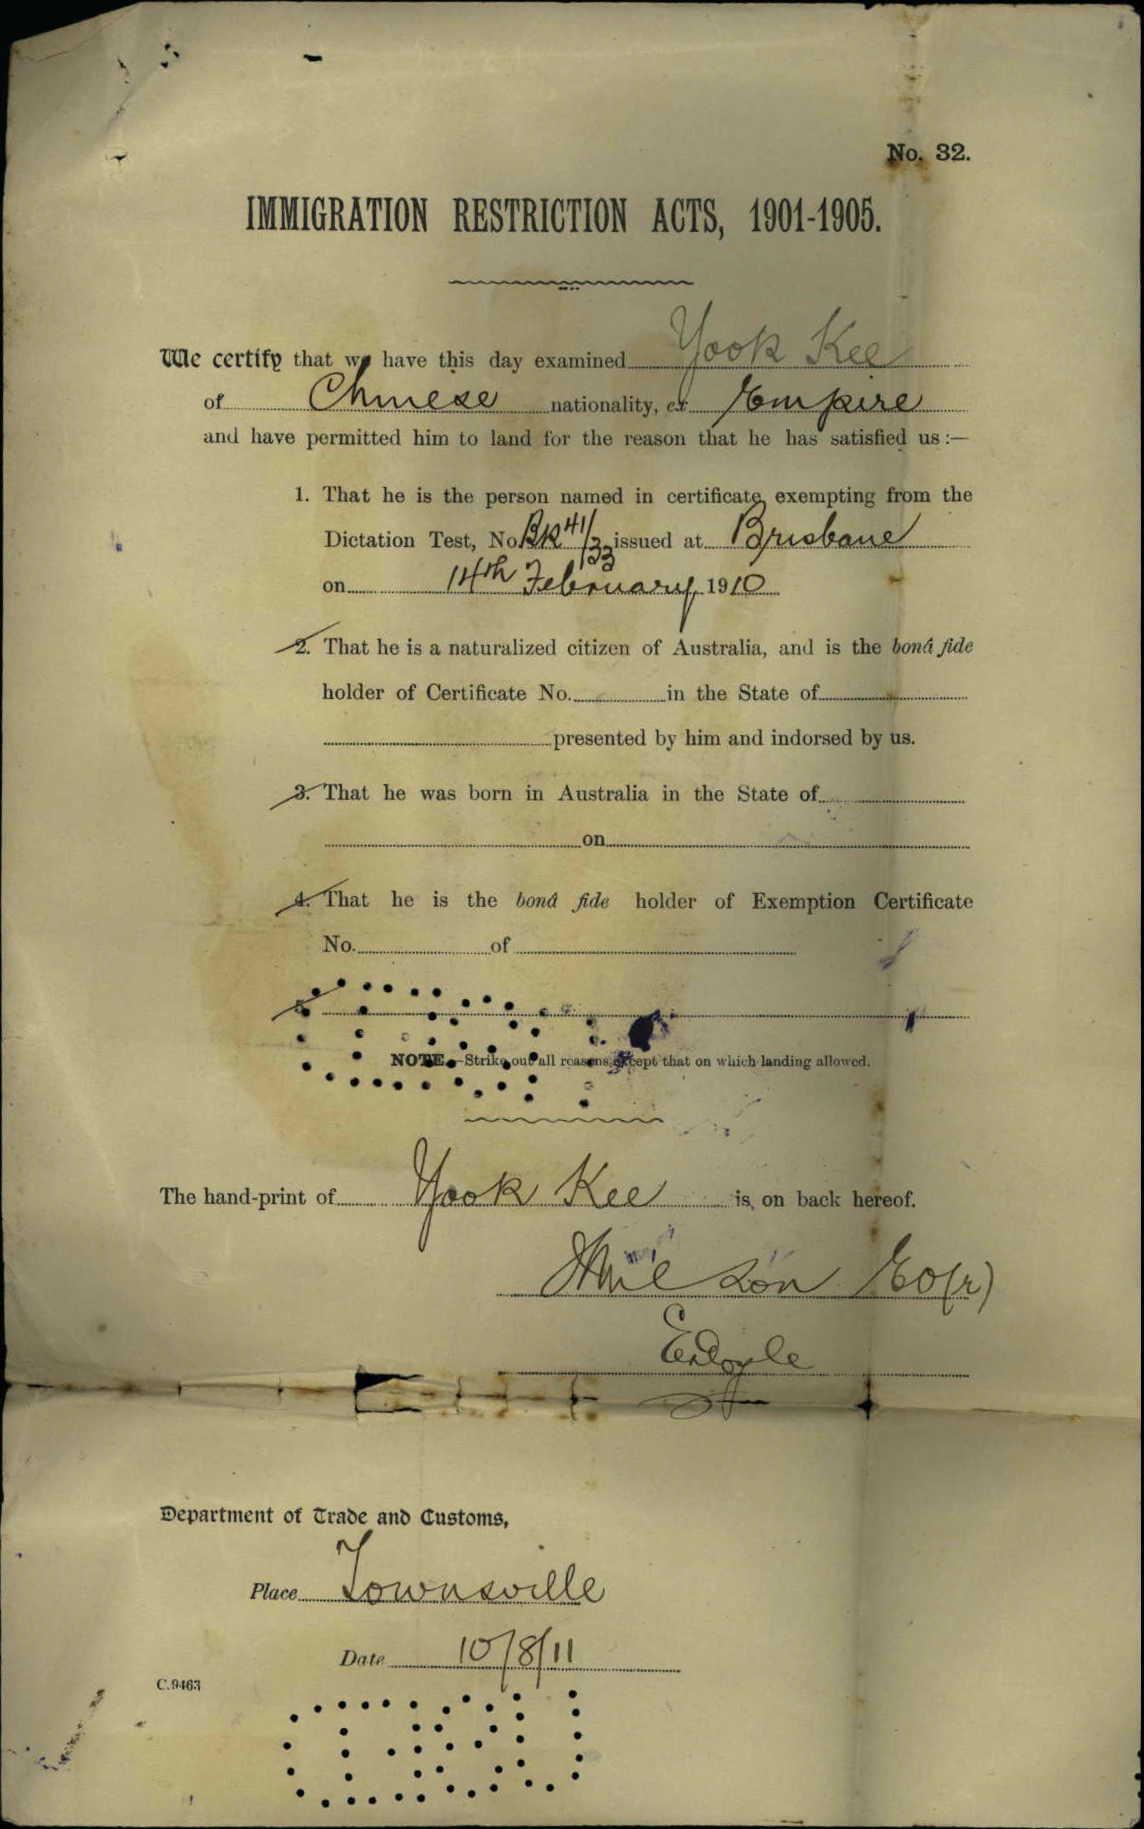 No. 32.
IMMIGRATION RESTRICTION ACTS, 1901-1905.
We certify that we have this day examined Yook Kee
of Chinese nationality, ex Empire
and have permitted him to land for the reason that he has satisfied us :—
1. That he is the person named in certificate exempting from the
Dictation Test, No. BK 41/33 issued at Brisbane
on 14th February, 1910
2. That he is a naturalized citizen of Australia, and is the bonâ fide
holder of Certificate No. in the State of
presented by him and indorsed by us.
3. That he was born in Australia in the State of
on
4. That he is the bonâ fide holder of Exemption Certificate
No. of
5.
NOTE.—Strike out all reasons except that on which landing allowed.
The hand-print of Yook Kee is on back hereof.
Wilson
E Doyle
Department of Trade and Customs,
Place Townsville
Date 10/8/11
C.9463